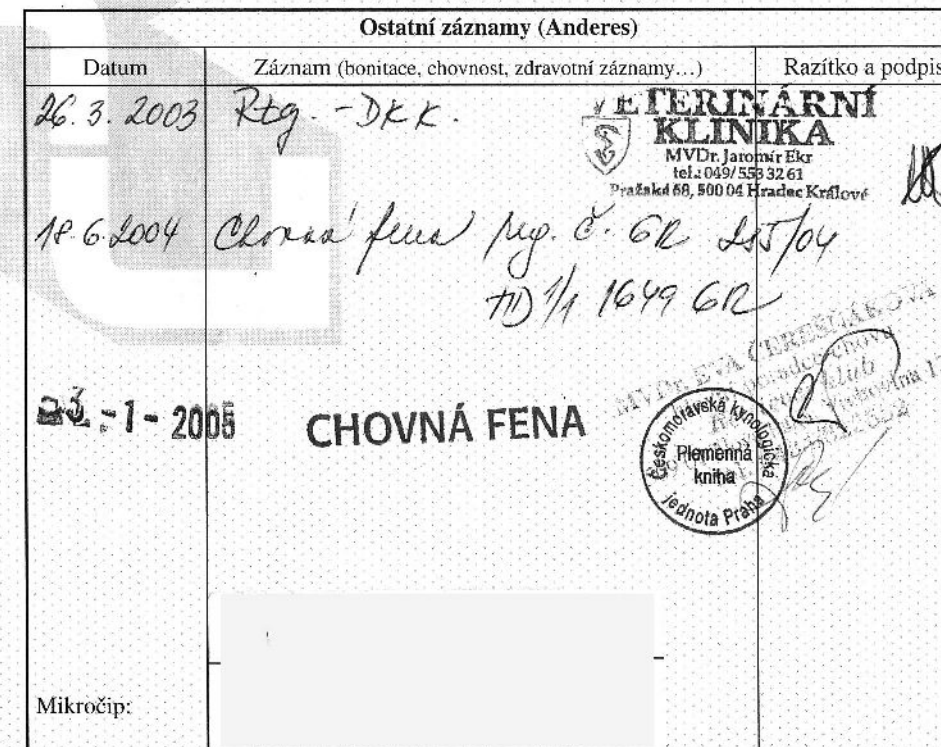 Ostatní záznamy (Anderes)
Datum
Záznam (bonitace, chovnost, zdravotní záznamy…)
Razítko a podpis
26. 3. 2003 Rtg. - DKK.
VETERINÁRNÍ
KLINIKA
MVDr. Jaromír Ekr
tel.: 049/ 553 32 61
Pražská 68, 500 04 Hradec Králové
18. 6. 2004 Chovná fena reg. č. GR 285/04
1/1 1649 GR
MVDr. EVA
-1- 2005
CHOVNÁ FENA
Českomoravská kynologická
jednota Praha
Plemenná
kniha
Mikročip: